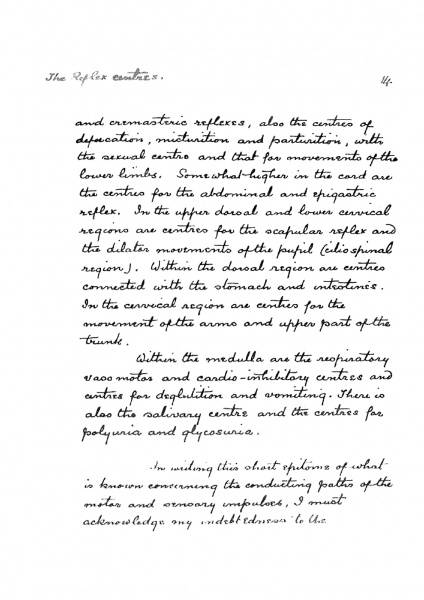 The Reflex centres.
14.
and cremasteric reflexes, also the centres of
defaecation, micturition and parturition, with
the sexual centre and that for movements of the
lower limbs. Somewhat higher in the cord are
the centres for the abdominal and epigastric
reflex. In the upper dorsal and lower cervical
regions are centres for the scapular reflex and
the dilator movements of the pupil (cilio spinal
region). Within the dorsal region are centres
connected with the stomach and intestines.
In the cervical region are centres for the
movement of the arms and upper part of the
trunk.
Within the medulla are the respiratory
vaso motor and cardio-inhibitory centres and
centres for deglutition and vomiting. There is
also the salivary centre and the centres for
polyuria and glycosuria.
In writing this short epitome of what
is known concerning the conducting paths of the
motor and sensory impulses, I must
acknowledge my indebtedness to the